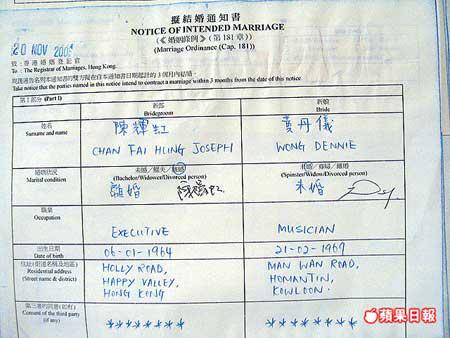 擬結婚通知書
NOTICE OF INTENDED MARRIAGE
(《婚姻條例》(第181章))
(Marriage Ordinance (Cap. 181))
20 NOV
致:香港婚姻登記官
To : The Registrar of Marriages, Hong Kong.
Take notice that the parties named in this notice intend to contract a marriage within 3 months from the date of this notice.
第I部分 (Part I)
新郎
Bridegroom
新娘
Bride
姓名
Surname and name
陳輝虹
CHAN FAI HUNG JOSEPH
黃丹儀
WONG DENNIE
婚姻狀況
Marital condition
未婚/鰥夫/離婚
(Bachelor/Widower/Divorced person)
離婚
陳輝虹
未婚/寡婦/離婚
(Spinster/Widow/Divorced person)
未婚
職業
Occupation
EXECUTIVE
MUSICIAN
出生日期
Date of birth
06-01-1964
21-02-1967
住址(街道名稱及地區)
Residential address
(Street name & district)
HOLLY ROAD,
HAPPY VALLEY,
HONG KONG
MAN WAN ROAD,
HOMANTIN,
KOWLOON.
第三者的同意(如有)
Consent of the third party
(if any)
********
********
蘋果日報